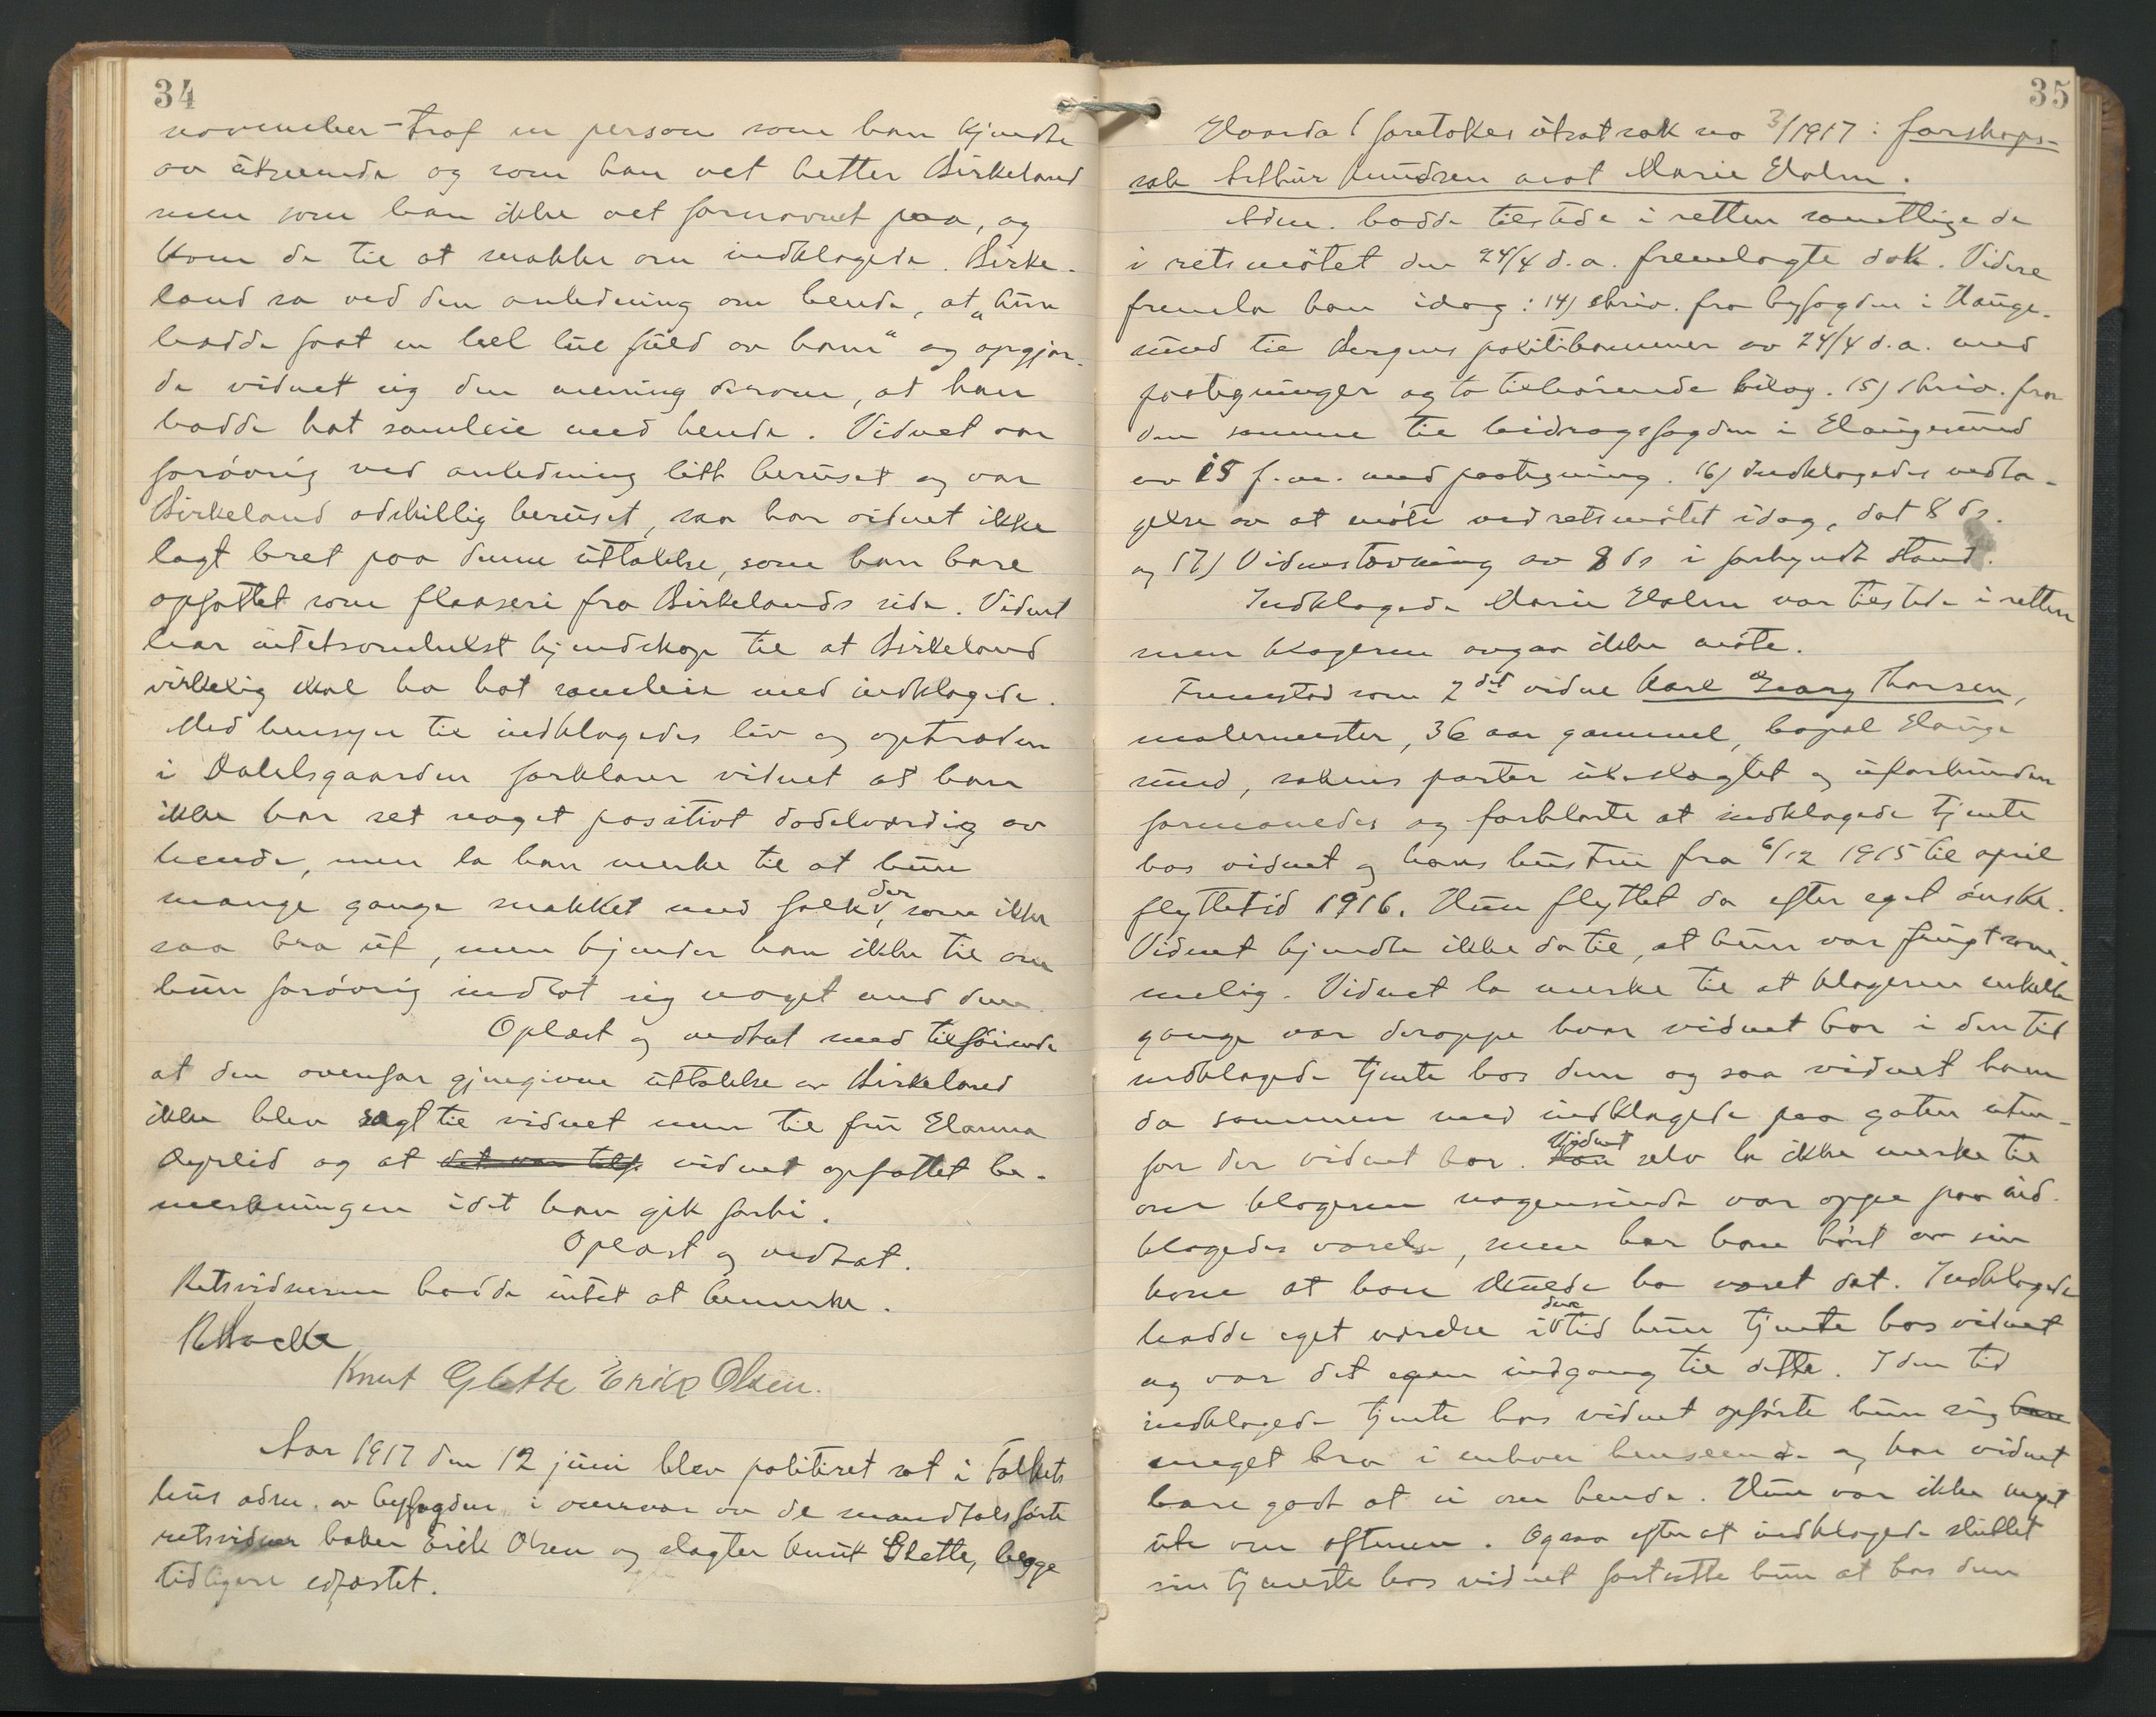 34
november – traf en person som han kjendte
av utseende og som han vet hetter Birkeland
men som han ikke vet fornavnet paa, og
kom de til at snakke om indklagede. Birke-
land sa ved den anledning om hende, at „hun
hadde faat en hel lue fuld av ham“ og opgjor-
de vidnet sig den mening derom, at han
hadde hat samleie med hende. Vidnet var
forøvrig ved anledning litt beruset og var
Birkeland adskillig beruset, saa har vidnet ikke
lagt bret paa denne uttalelse, som han bare
opfattet som flaaseri fra Birkelands side. Vidnet
har intetsomhelst kjendskap til at Birkeland
virkelig skal ha hat samleie med indklagede.
Med hensyn til indklagedes liv og optræden
i Dalelsgaarden forklarer vidnet at han
ikke har set noget positivt dadelværdig av
hende, men la han merke til at hun
mange gange snakket med folk, der som ikke
saa bra ut, men kjender han ikke til om
hun forøvrig indlot sig noget med dem.
Oplæst og vedtat med tilføiende
at den ovenfor gjengivne uttalelse av Birkeland
ikke blev sagt til vidnet men til fru Hanna
Øyreid og at det var tilf. vidnet opfattet be-
merkningen idet han gik forbi.
Oplæst og vedtat.
Retsvidnerne hadde intet at bemerke.
Knut Glette Erik Olsen.
Aar 1917 den 12 juni blev politiret sat i Folkets
hus adm. av byfogden i overvær av de mandtalsførte
retsvidner baker Erik Olsen og slagter Knut Glette, begge
tidligere edfæstet.
35
Hvorda foretokes utsat sak no 3/1917: farskaps-
sak Arthur Knudsen mot Marie Holm.
Adm. hadde tilstede i retten samtlige de
i retsmötet den 24/4 d.a. fremlagte dok. Videre
fremla han idag: 14) skriv. fra byfogden i Hauge-
sund til Bergens politikammer av 24/4 d.a. med
paategninger og to tilhörende bilag. 15) skriv. fra
den samme til bidragsfogden i Haugesund
av 15 f.m. med paategning. 16) Indklagedes vedta-
gelse av at möte ved retsmötet idag, dat 8 ds.
og 17) Vidnestævning av 8 ds i forkyndt stand.
Indklagede Marie Holm var tilstede i retten
men klageren avgav ikke möte.
Fremstod som 2det vidne Karl Georg Thorsen,
malermester, 36 aar gammel, bopæl Hauge
sund, sakens parter ubeslægtet og uforbunden
formanedes og forklarte at indklagede tjente
hos vidnet og hans hustru fra 6/12 1915 til april
flyttetid 1916. Hun flyttet da efter eget önske.
Vidnet kjendte ikke da til, at hun var frugtsom-
melig. Vidnet la merke til at klageren enkelte
gange var deroppe hvor vidnet bor i den tid
indklagede tjente hos dem og saa vidnet ham
da sammen med indklagede paa gaten uten-
for der vidnet bor. Han Vidnet selv la ikke merke til
om klageren nogensinde var oppe paa ind-
klagedes værelse, men har han hört av sin
kone at han skulde ha været det. Indklagede
hadde eget værelse i den tid hun tjente hos vidnet
og var det egen indgang til dette. I den tid
indklagede tjente hos vidnet opförte hun sig bare
meget bra i enhver henseende og har vidnet
bare godt at si om hende. Hun var ikke meget
ute om aftenen. Ogsaa efter at indklagede sluttet
sin tjeneste hos vidnet fortsatte hun at bo hos dem